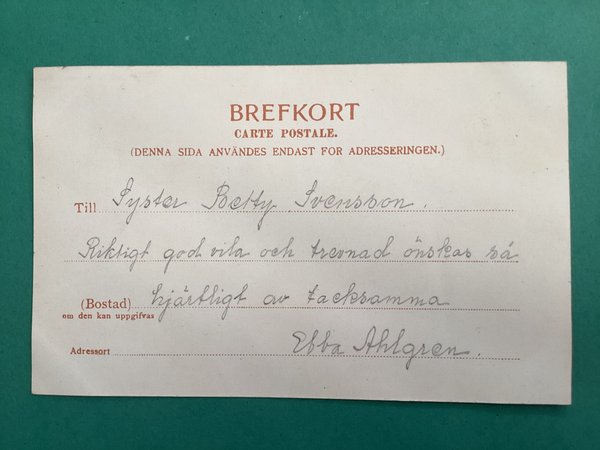 BREFKORT
CARTE POSTALE.
(DENNA SIDA ANVÄNDES ENDAST FÖR ADRESSERINGEN.)
Till Syster Betty Svensson.
Riktigt god vila och trevnad önskas så
(Bostad) hjärtligt av tacksamma
om den kan uppgifvas
Adressort Ebba Ahlgren.